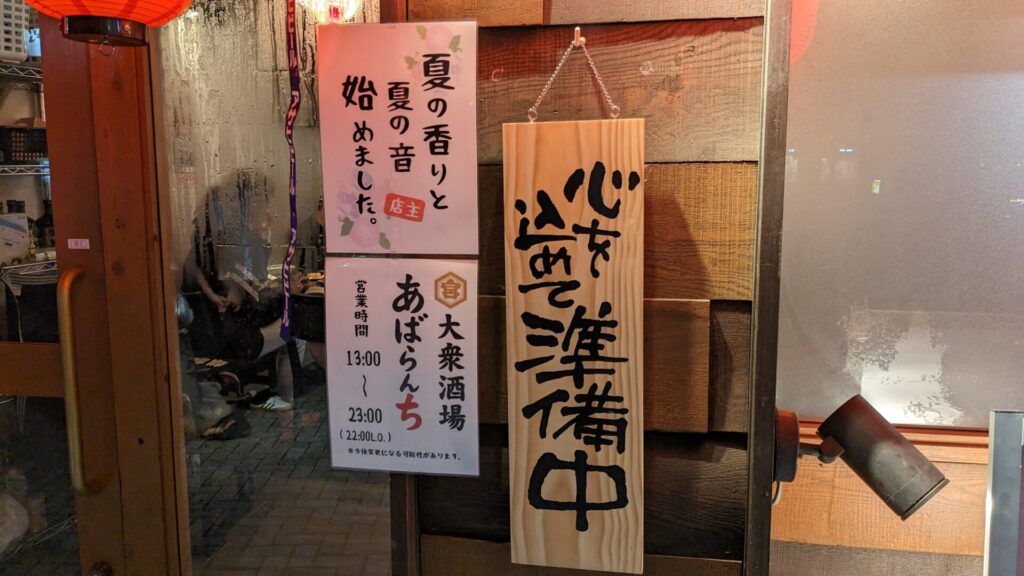 夏の香りと
夏の音
始めました。
店主
宮
大衆酒場
あばらんち
営業時間
13:00
〜
23:00
(22:00L.O.)
※今後変更になる可能性があります。
心を
込めて
準備中